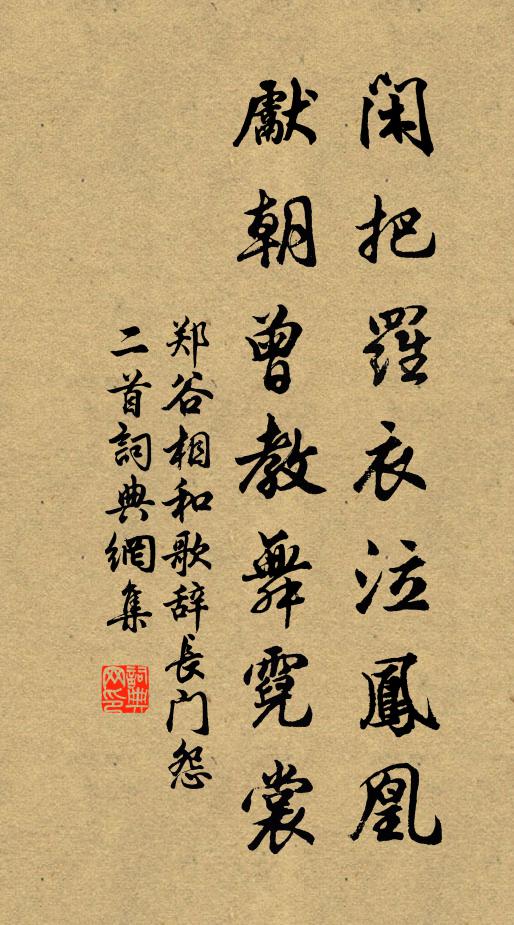 閑把羅衣泣鳳凰
獻朝曾教舞霓裳
郑谷相和歌辞長门怨
二首詞典網集
詞典网印